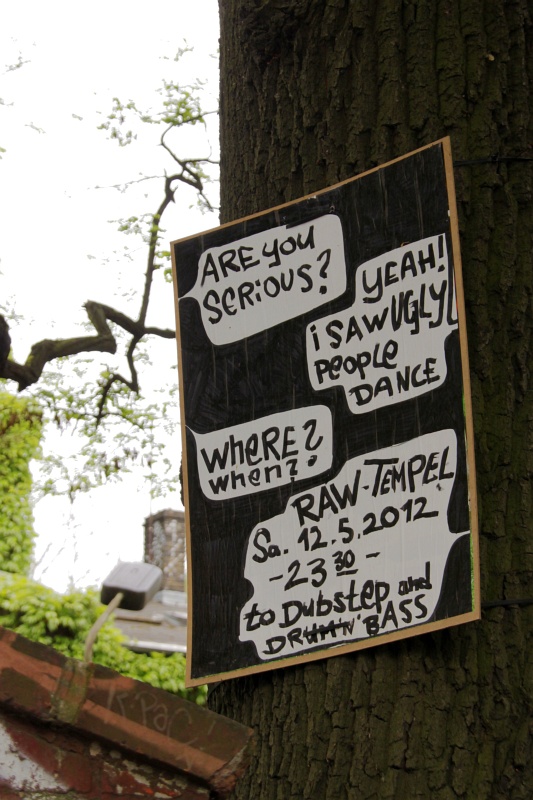 ARE YOU
SERiOUS?
YEAH!
i SAW UGLY
PEOPLE
DANCE
WHERE?
when?
RAW-TEMPEL
Sa. 12.5.2012
-23 30 -
to Dubstep and
DRUM'N'BASS